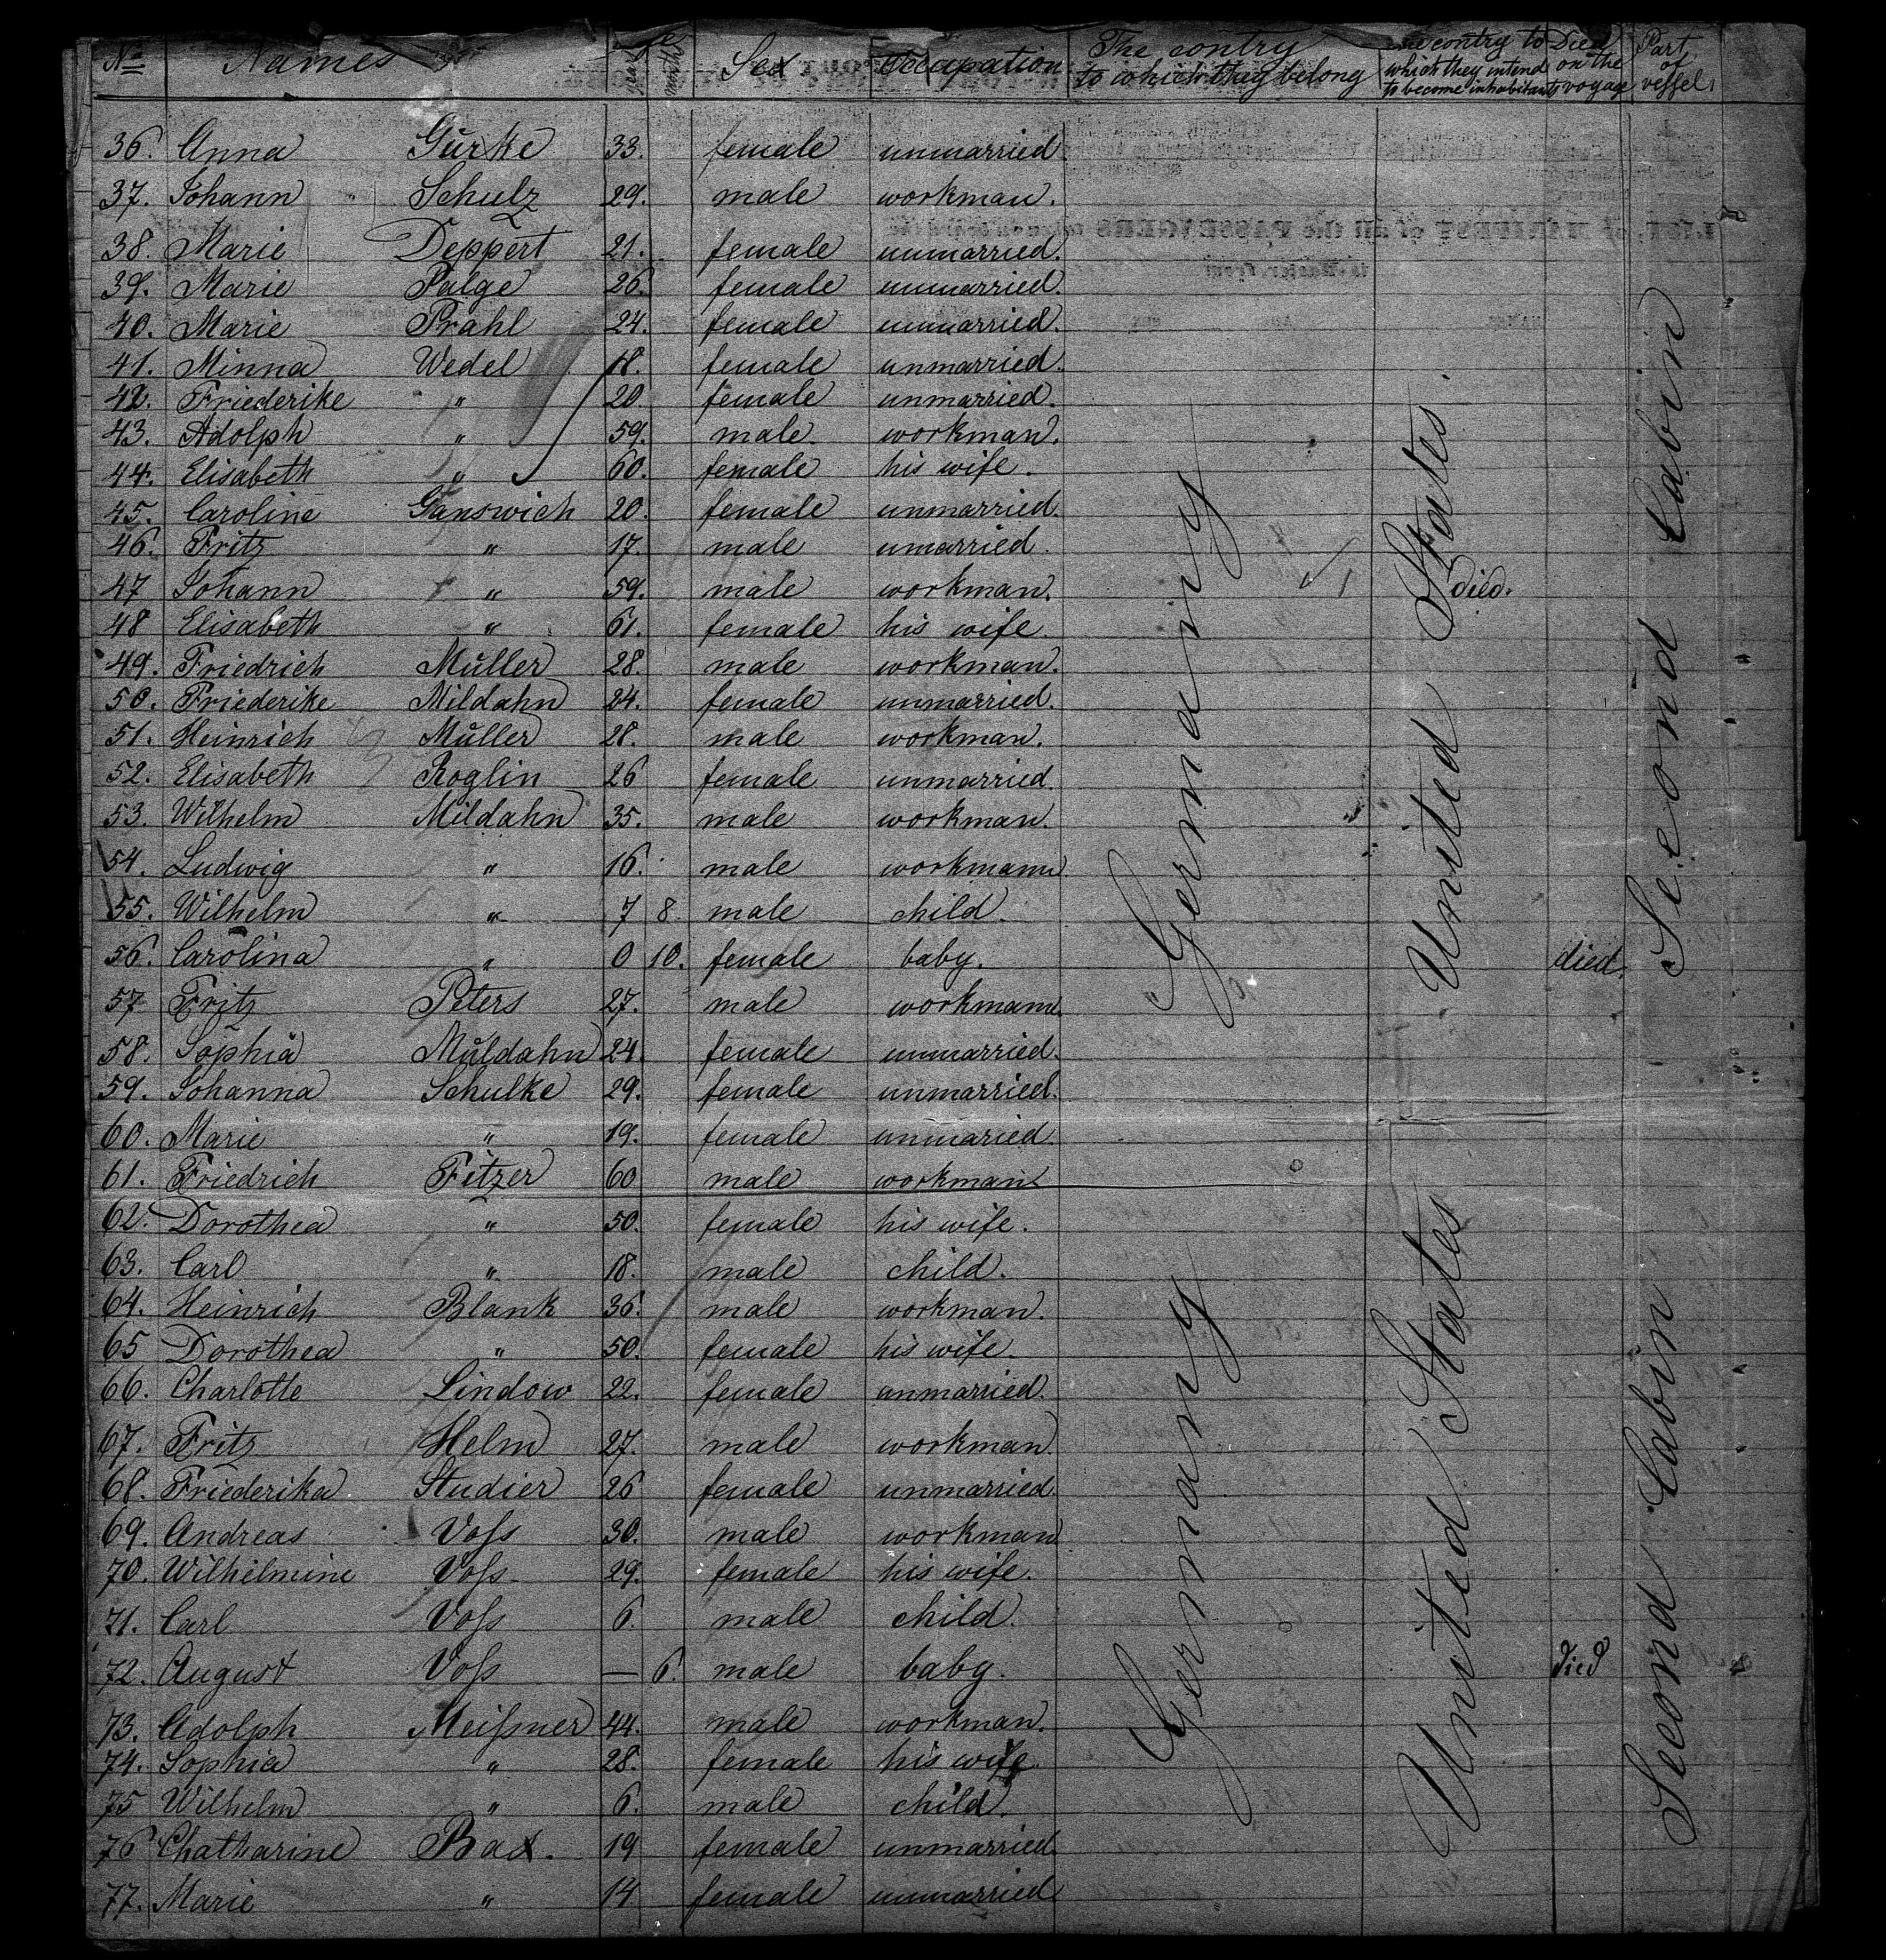 No Names years months Sex Occupation The contry to which they belong The contry to which they intend to become inhabitants Died on the voyage Part of vessel
36. Anna Gurke 33. female unmarried
37. Johann Schulz 29. male workman.
38. Marie Deppert 21. female unmarried.
39. Marie Palge 26. female unmarried.
40. Marie Prahl 24. female unmarried.
41. Minna Wedel 18. female unmarried.
42. Friederike " 20 female unmarried.
43. Adolph " 59. male workman.
44. Elisabeth " 60. female his wife.
45. Caroline Ganswich 20. female unmarried.
46. Fritz " 17. male umarried.
47 Johann " 59. male workman. died.
48 Elisabeth " 61. female his wife.
49. Friedrich Muller 28. male workman.
50. Friederike Mildahn 24. female unmarried.
51. Heinrich Muller 28. male workman.
52. Elisabeth Roglin 26 female unmarried.
53. Wilhelm Mildahn 35. male workman.
54. Ludwig " 16. male workmann
55. Wilhelm " 7 8. male child.
56. Carolina " 0 10. female baby. died.
57 Fritz Peters 27. male workmann
58. Sophia Muldahn 24 female unmarried.
59. Johanna Schulke 29. female unmarried.
60. Marie " 19. female unmaried.
61. Friedrich Fitzer 60 male workman
62. Dorothea " 50. female his wife.
63. Carl " 18. male child.
64. Heinrich Blank 36. male workman.
65 Dorothea " 50. female his wife.
66. Charlotte Lindow 22. female unmarried.
67. Fritz Helm 27. male workman.
68. Friederika Studier 26 female unmarried.
69. Andreas Voſs 30. male workman
70. Wilhelmine Voſs 29. female his wife.
71. Carl Voſs 6. male child.
72. August Voſs — 6. male baby. died
73. Adolph Meiſsner 44. male workman.
74. Sophia " 28. female his wife.
75 Wilhelm " 6. male child.
76 Chatharine Bax. 19 female unmarried.
77. Marie " 14 female unmarried
Germany
United States.
Second Cabin
Germany
United States
Second Cabin
LIST, or MANIFEST of all the PASSENGERS taken on board the